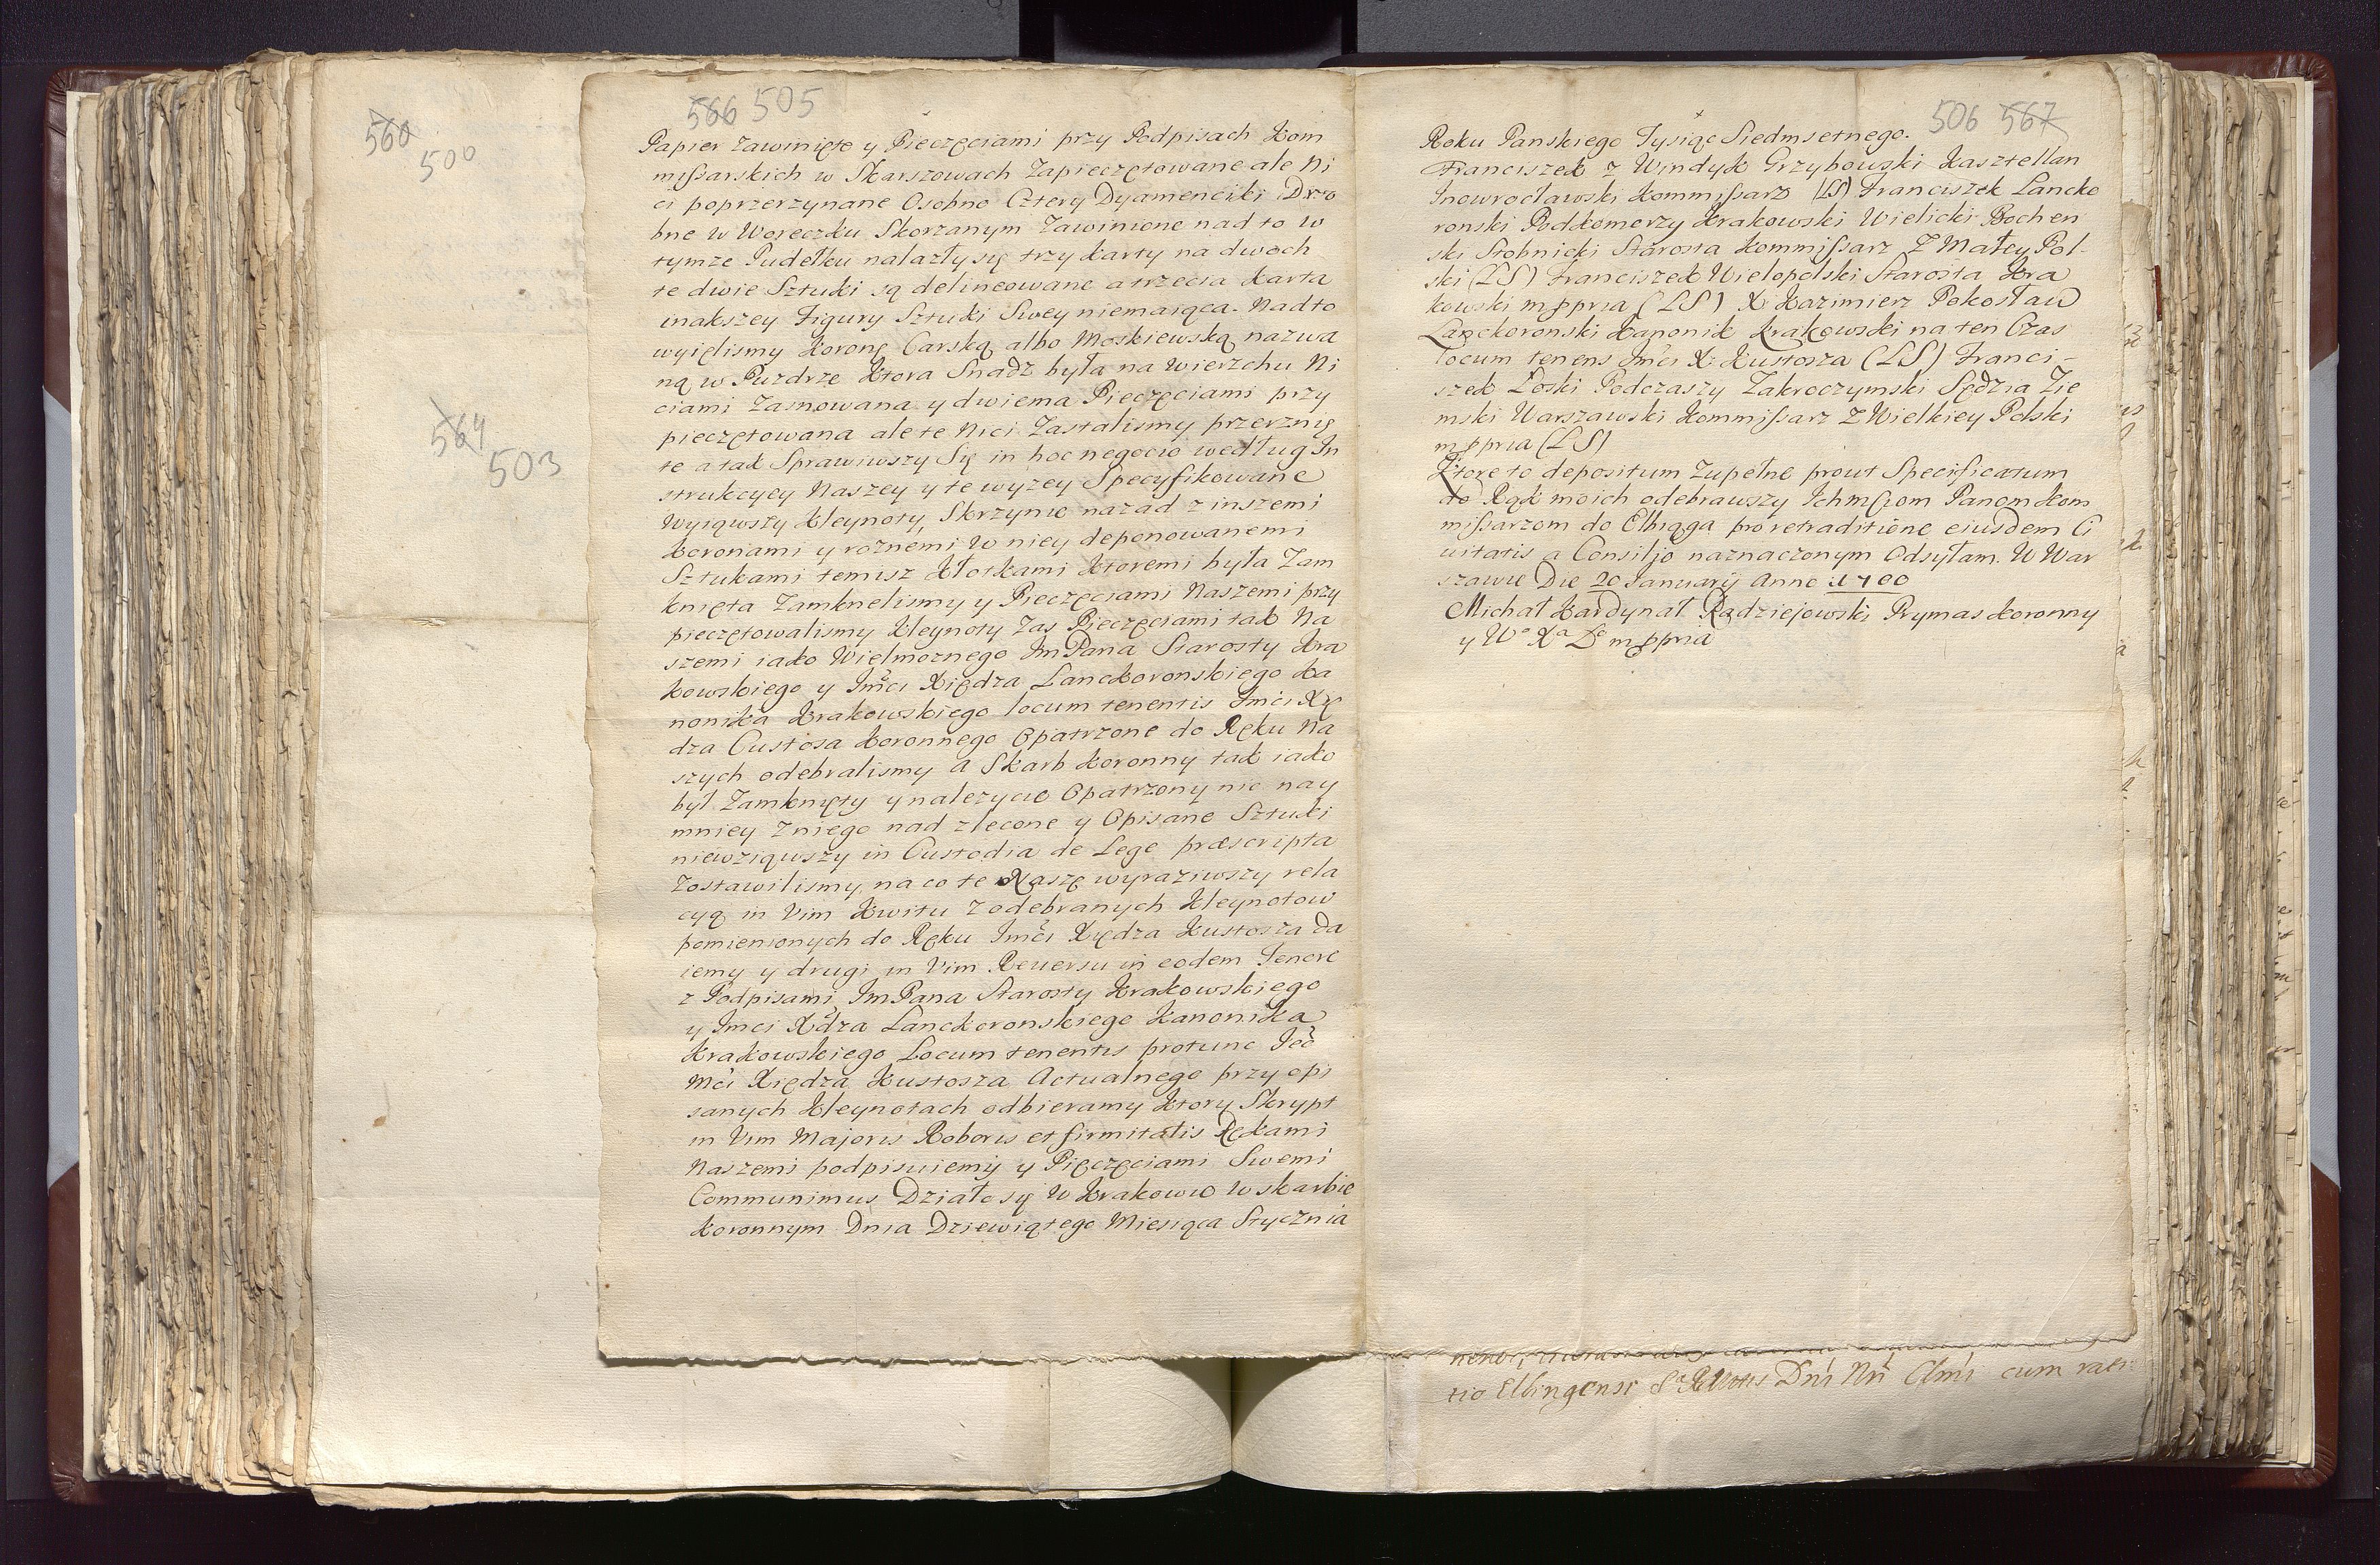 560
500
564
503
566 505
Papier zawinięte y Pieczęciami przy Podpisach Kom
mißarskich w Skarszowach Zapieczętowane ale Ni
ci poprzerzynane Osobno Cztery Dyamenciki Dro
bne w Woreczku Skorzanym Zawinione nad to w
tymze Pudełku nalazły się trzy karty na dwoch
te dwie Sztuki są delineowane a trzecia Karta
inakszey Figury Sztuki Swey niemaiąca. Nadto
wyięlismy Koronę Carską albo Moskiewską nazwa
ną w Puzdrze Ktora Snadz była na wierzchu Ni
ciami Zasnowana y dwiema Pieczęciami przy
pieczętowana ale te Nici Zastalismy przerznię
te a tak Sprawiwszy Się in hoc negocio według In
strukcyey Naszey y te wyzey Specyfikowane
Wyiąwszy Kleynoty, Skrzynie nazad z inszemi
Koronami y roznemi w niey deponowanemi
Sztukami temisz Kłotkami Ktoremi była Zam
knięta Zamknelismy y Pieczęciami Naszemi przy
pieczętowalismy Kleynoty Zas Pieczęciami tak Na
szemi iako Wielmoznego Im Pana Starosty Kra
kowskiego y Jmci Xiędza Lanckoronskiego Ka
nonika Krakowskiego locum tenentis Jmci Xię
dza Custosa Koronnego Opatrzone do Ręku Na
szych odebralismy a Skarb Koronny tak iako
był Zamknięty y nalezycie Opatrzony nic nay
mniey Zniego nad zlecone y Opisane Sztuki
niewziąwszy in Custodia de Lege præscripta
Zostawilismy, na co te Naszę wyraziwszy rela
cyą in Vim Kwitu z odebranych Kleynotow
pomienionych do Ręku Jmci Xiędza Kustosza da
iemy y drugi in Vim Reuersu in eodem Tenore
z Podpisami Im Pana Starosty Krakowskiego
y Jmci Xdza Lanckoronskiego Kanonika
Krakowskiego Locum tenentis protunc Jeo
Mci Xiędza Kustosza Actualnego przy opi
sanych Kleynotach odbieramy Ktory Skrypt
in Vim Majoris Roboris et firmitatis Rękami
Naszemi podpisuiemy y Pięczęciami Swemi
Communimus Działo się w Krakowie w skarbie
Koronnym Dnia Dziewiątego Miesiąca Stycznia
506 567
Roku Panskiego Tysiąc Siedmsetnego.
Franciszek z Windyk Grzybowski Kasztellan
Inowrocławski Kommißarz (LS) Franciszek Lancko
ronski Podkomorzy Krakowski Wielicki Bochen
ski Stobnicki Starosta Kommißarz Z Małey Pol-
ski (LS) Franciszek Wielopolski Starosta Kra
kowski mppria (LS) X Kazimierz Pokosław
Lanckoronski Kanonik Krakowski na ten Czas
locum tenens Jmci X: Kustosza (LS) Franci-
szek Łoski Podczaszy Zakroczymski Sędzia Zie
mski Warszawski Kommißarz Z Wielkiey Polski
mppria (LS)
Ktore to depositum Zupełne prout Specificatum
do Rąk moich odebrawszy Ichmciom Panom Kom
mißarzom do Elbiąga pro retraditione eiusdem Ci
uitatis a Consiljo naznaczonym Odsyłam. W War
szawie Die 20 January Anno 1700
Michał Kardynał Radziejowski Prymas Koronny
y Wo Xa Lo mppria
tio Elbingensi Sa R Mtis Dni Nri Clmi cum